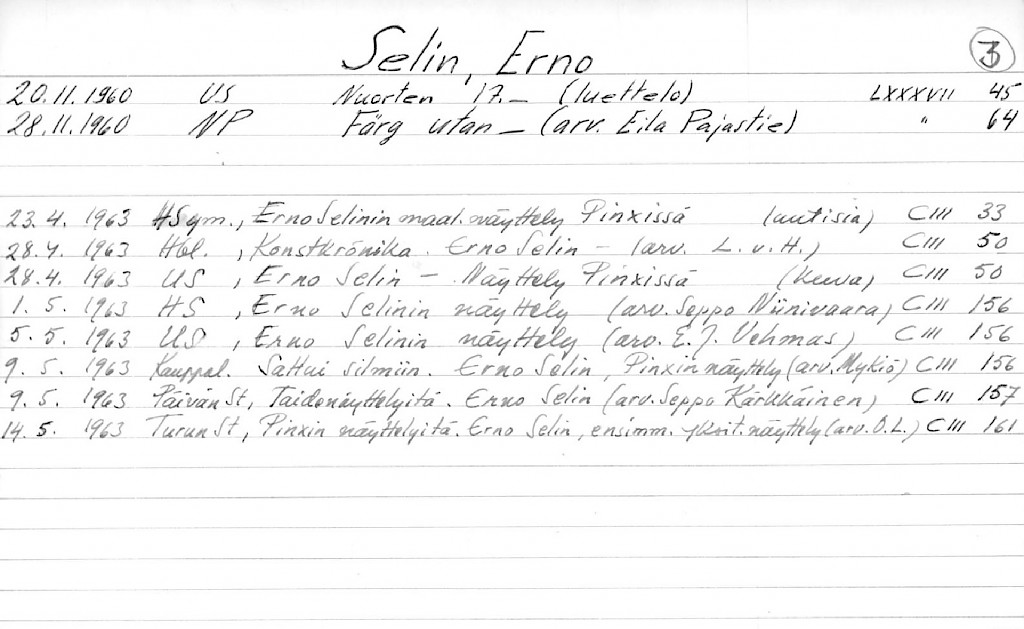 Selin, Erno 3
20.11.1960 US Nuorten 17.— (luettelo) LXXXVII 45
28.11.1960 NP Färg utan — (arv. Eila Pajastie) " 64
23.4. 1963 HSym., Erno Selinin maal. näyttely Pinxissä (uutisia) CIII 33
28.4. 1963 Hbl., Konstkrönika. Erno Selin — (arv. L. v. H.) CIII 50
28.4. 1963 US, Erno Selin — Näyttely Pinxissä (kuva) CIII 50
1. 5. 1963 HS, Erno Selinin näyttely (arv. Seppo Niinivaara) CIII 156
5. 5. 1963 US, Erno Selinin näyttely (arv. E. J. Vehmas) CIII 156
9. 5. 1963 Kauppal. Sattui silmiin. Erno Selin, Pinxin näyttely (arv. Mykiö) CIII 156
9. 5. 1963 Päivän St, Taidenäyttelyitä. Erno Selin (arv. Seppo Kärkkäinen) CIII 157
14. 5. 1963 Turun St, Pinxin näyttelyitä. Erno Selin, ensimm. yksit. näyttely (arv. O. L.) CIII 161